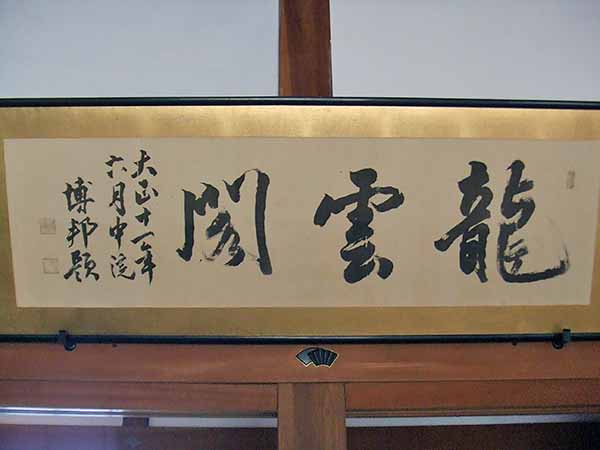 龍雲閣
大正十一年
六月中浣
博邦題